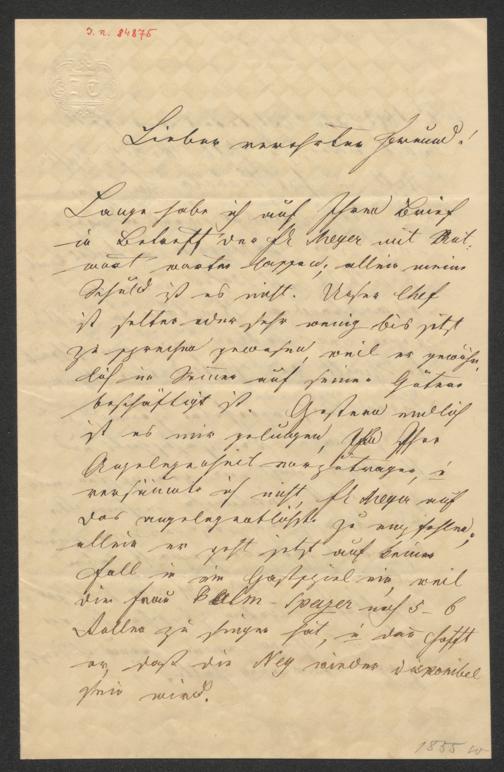 J. n. 84876
Lieber verehrter Freund!
Lange habe ich auf Ihren Brief
in Betreff der Frl Meyer mit Ant-
wort warten lassen; allein meine
Schuld ist es nicht. Unser Chef
ist selten oder sehr wenig bis jetzt
zu sprechen gewesen, weil er gewöhn-
lich im Sommer auf seinen Gütern
beschäftigt ist. Gestern endlich
ist es mir gelungen, Ihre
Angelegenheit vorzutragen, u
versäumte ich nicht, Frl Meyer auf
das angelegentlichste zu empfehlen,
allein er geht jetzt auf keinen
Fall in ein Gastspiel ein, weil
die Frau Palm-Spazer noch 5-6
Rollen zu singen hat, u dann hofft
er, daß die Ney wieder disponibel
sein wird.
1855